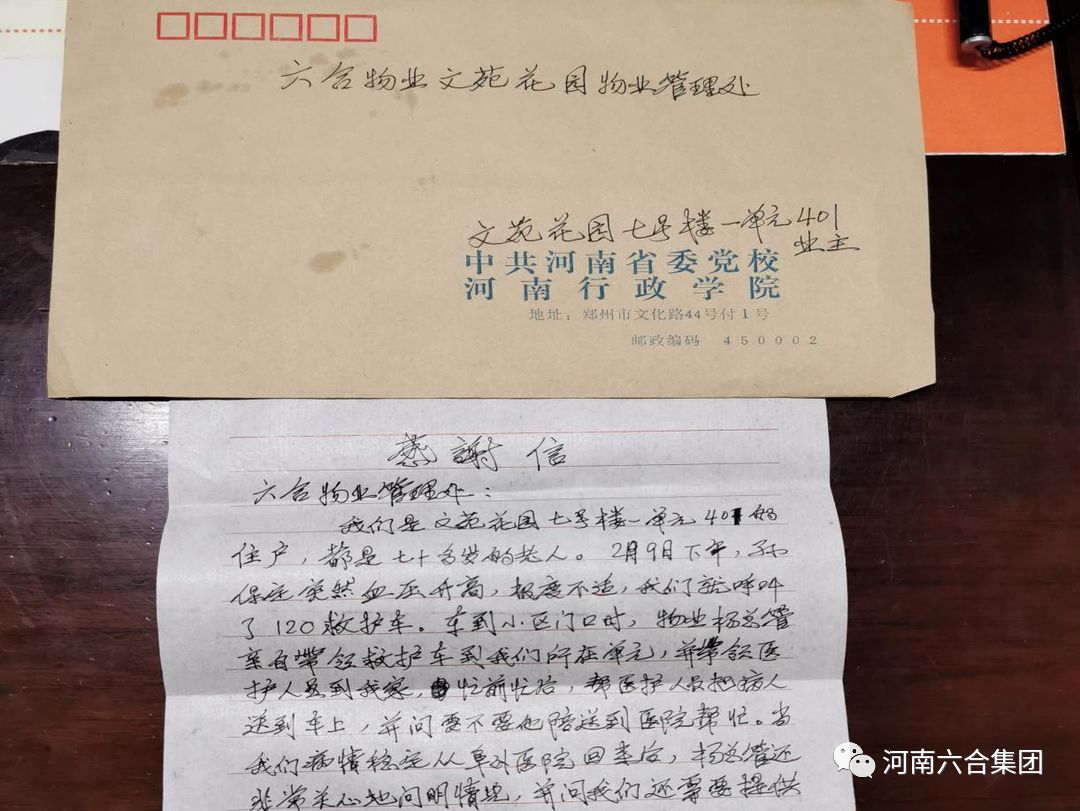 六合物业文苑花园物业管理处
文苑花园七号楼一单元401
业主
中共河南省委党校
河南行政学院
地址：郑州市文化路44号付1号
邮政编码 450002
感謝信
六合物业管理处：
我们是文苑花园七号楼一单元401的
住户，都是七十多岁的老人。2月9日下午，
突然血压升高，极度不适，我们就呼叫
了120救护车。车到小区门口时，物业杨总管
亲自带领救护车到我们所在单元，并带领医
护人员到我家，忙前忙后，帮医护人员把病人
送到车上，并问要不要他陪送到医院帮忙。当
我们病情稳定从阜外医院回来后，杨总管还
非常关心地问明情况，并问我们还需要提供
河南六合集团